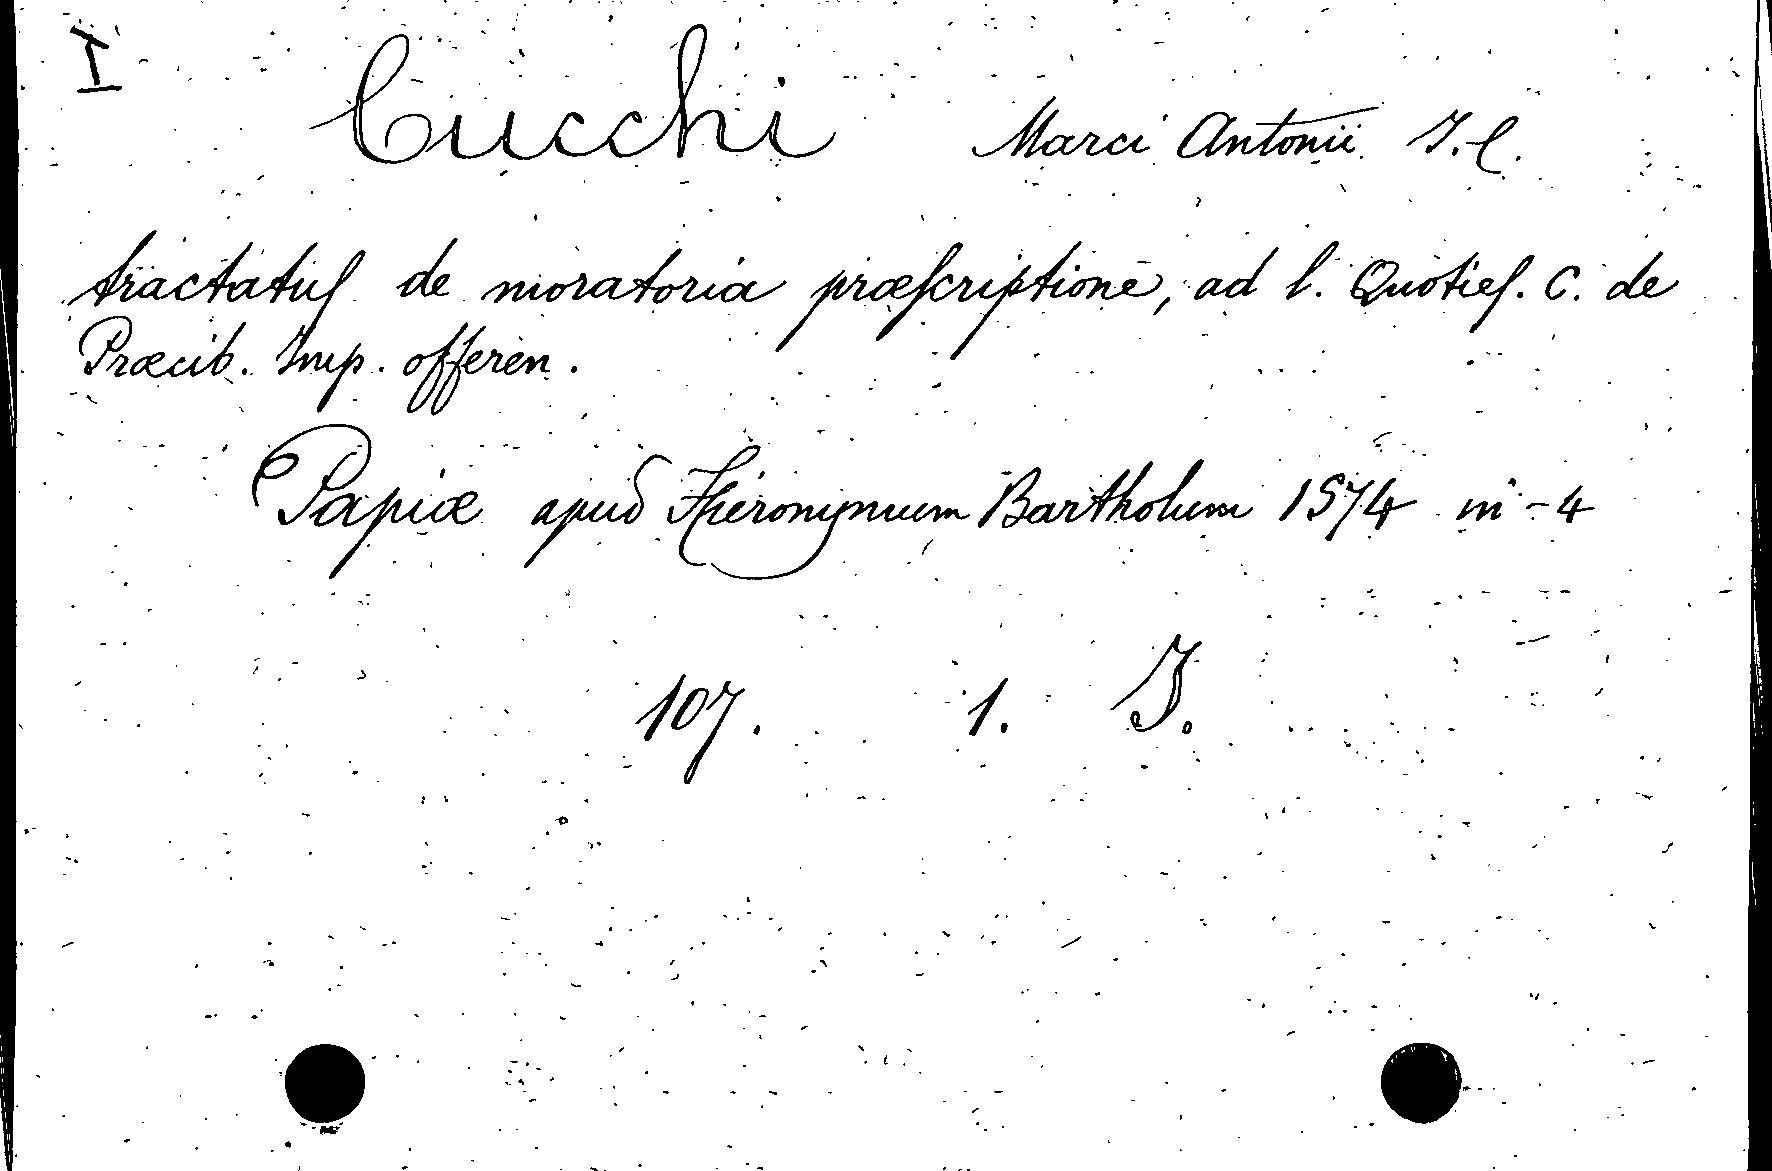 I
Cucchi Marci Antonii J.C.
tractatuſ de moratoria præſcriptione, ad l. Quotieſ. C. de
Præcib. Imp. offeren.
Papiæ apud Hieronymum Bartholum 1574 in-4
107. 1. J.